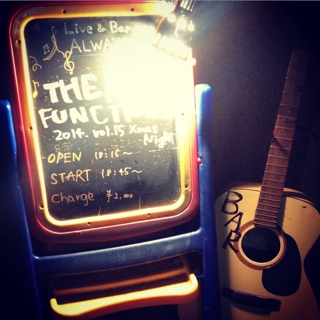 Live & Bar
ALWAY
THE
FUNCT
2014. vol.15 Xmas
Night
OPEN 18:15～
START 18:45～
Charge ¥2,000
BAR